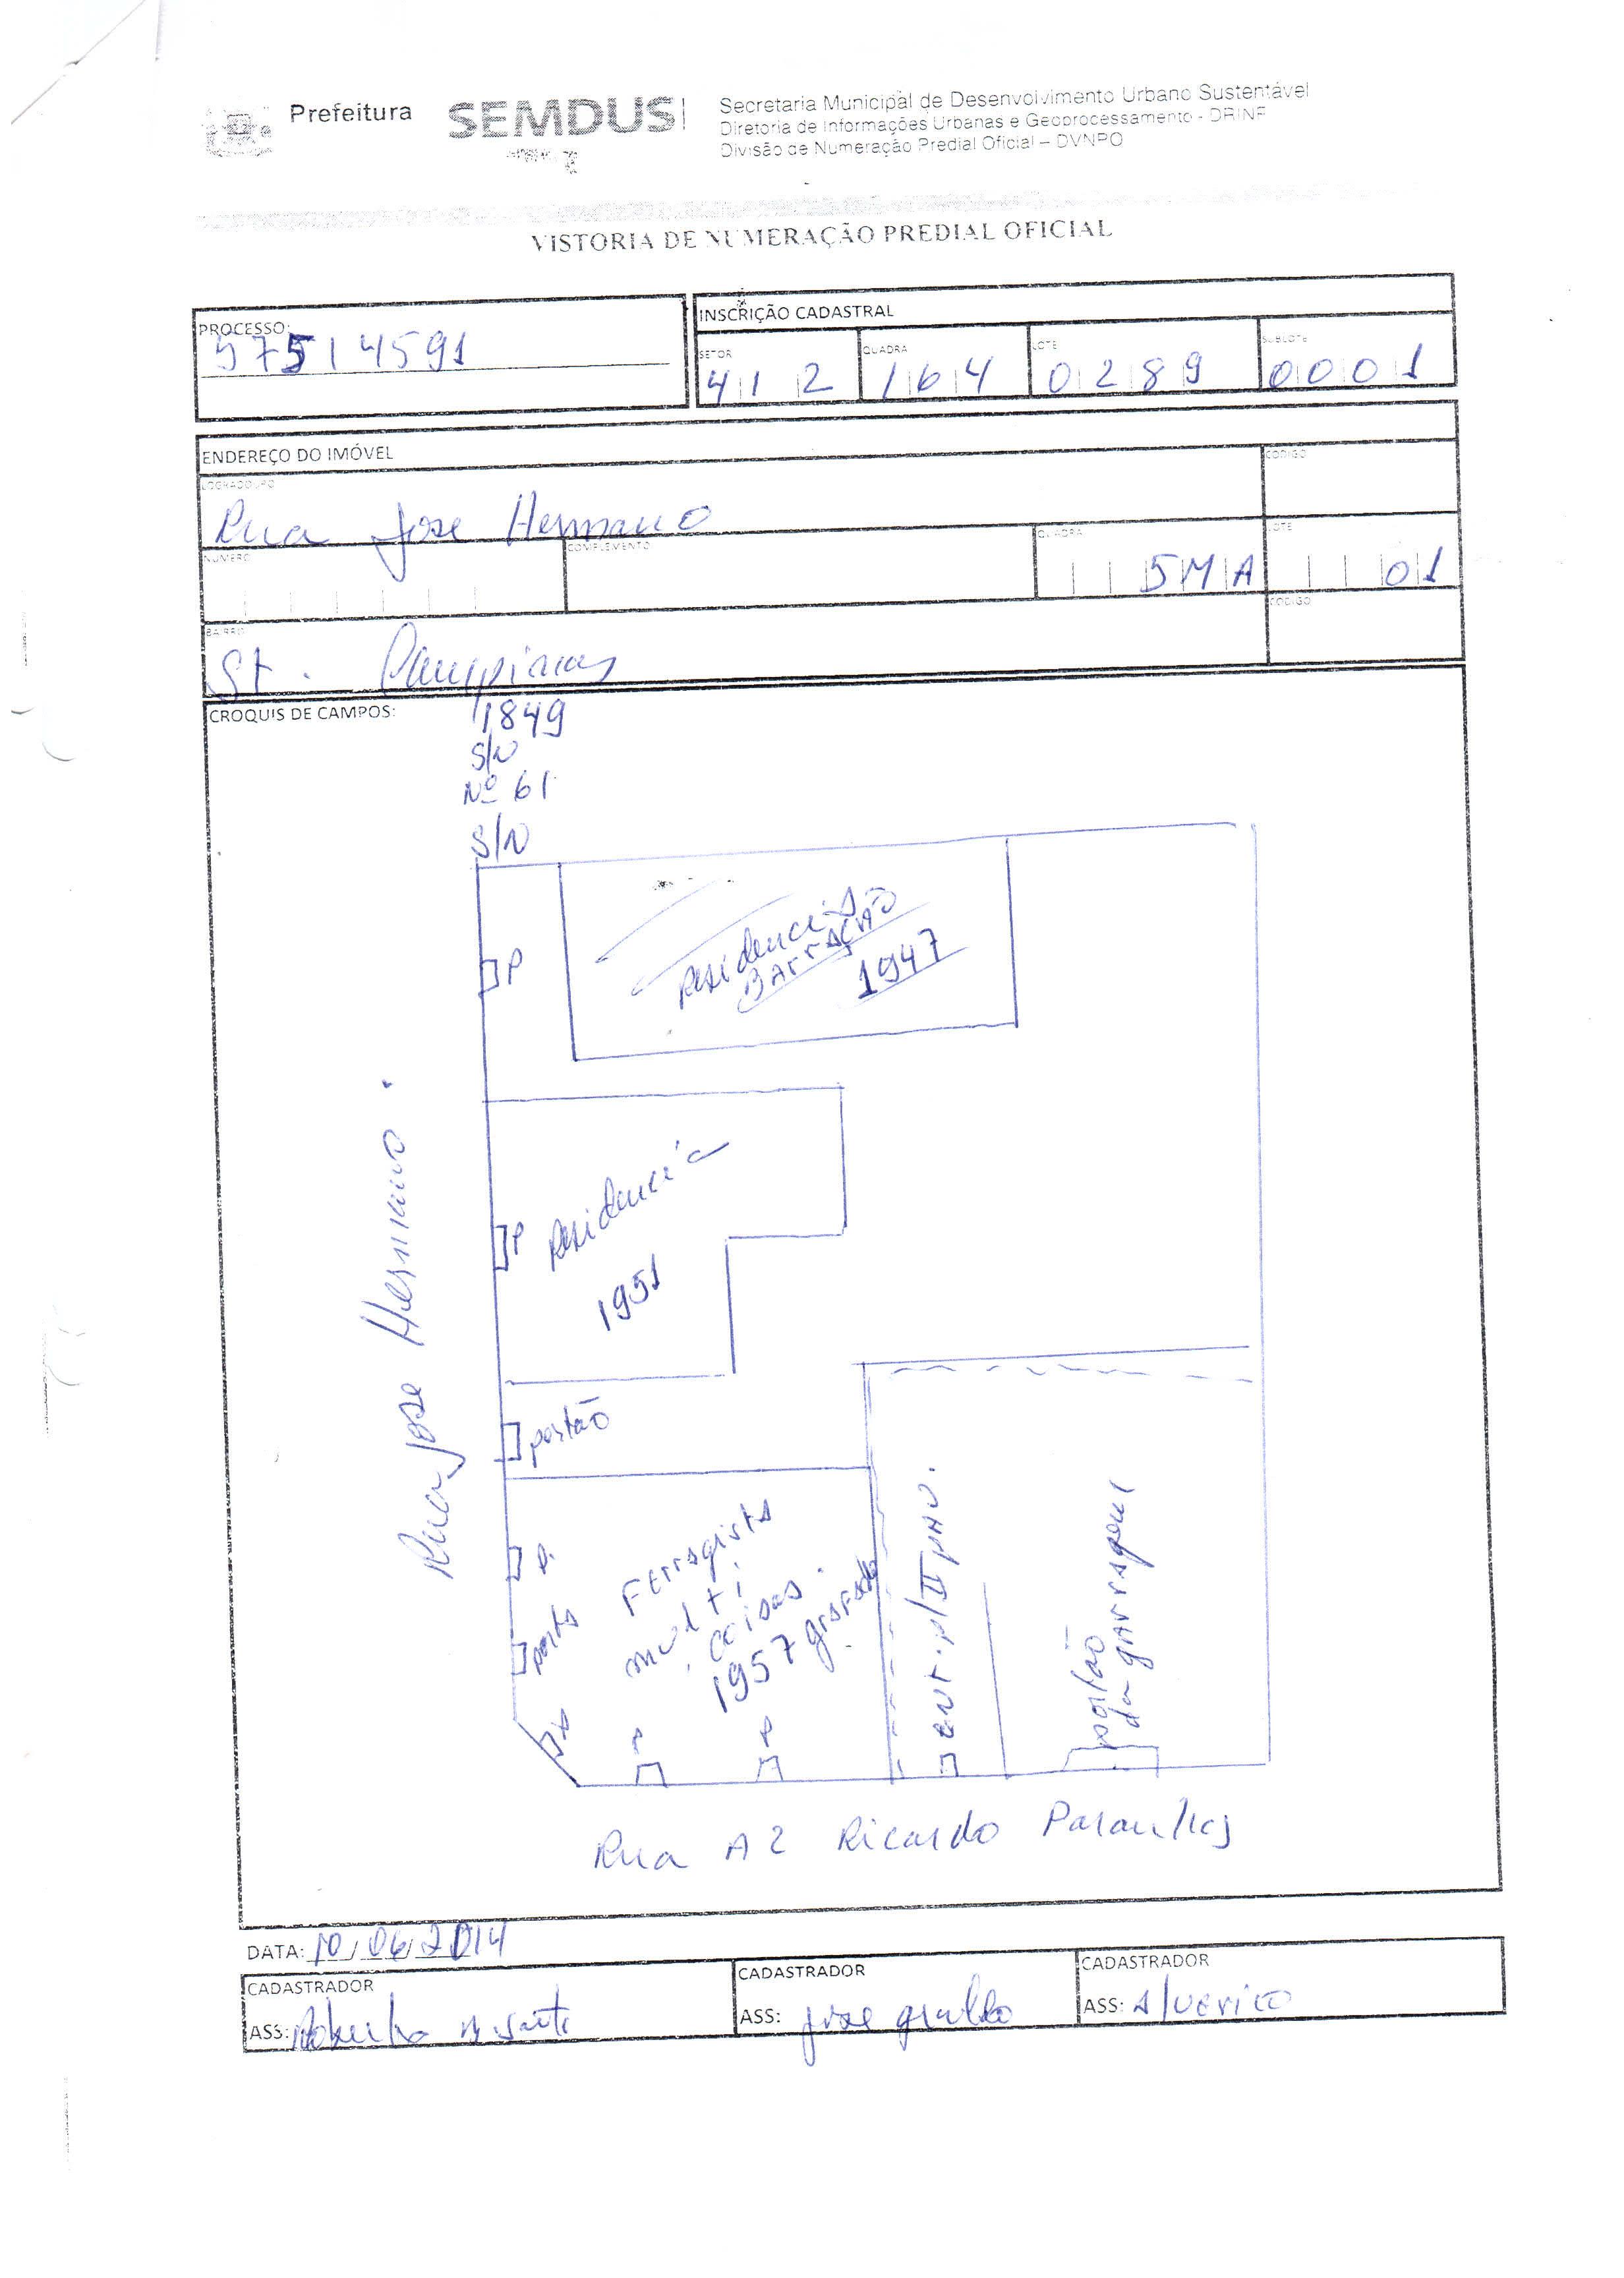 Prefeitura
SEMDUS
Secretaria Municipal de Desenvolvimento Urbano Sustentável
Diretoria de Informações Urbanas e Geoprocessamento - DRINF
Divisão de Numeração Predial Oficial – DVNPO
VISTORIA DE NUMERAÇÃO PREDIAL OFICIAL
PROCESSO:
57514591
INSCRIÇÃO CADASTRAL
SETOR QUADRA LOTE SUBLOTE
412 164 0289 0001
ENDEREÇO DO IMÓVEL
LOGRADOURO CODIGO
Rua Jose Hermano
NUMERO COMPLEMENTO QUADRA LOTE
5MA 01
BAIRRO CODIGO
St. Campinas
CROQUIS DE CAMPOS:
1849
S/N
Nº 61
S/N
Residencia
BArrAcÃO
1947
P
Residencia
1951
P
Rua Jose Hermano.
portão
Ferragista
multi
coisas.
1957
P.
porta
P
P
P
ent. p/ II pav.
portão
da garragem
Rua A2 Ricardo Paranhos
DATA: 10/06/2014
CADASTRADOR
ASS:
CADASTRADOR
ASS: jose
CADASTRADOR
ASS: